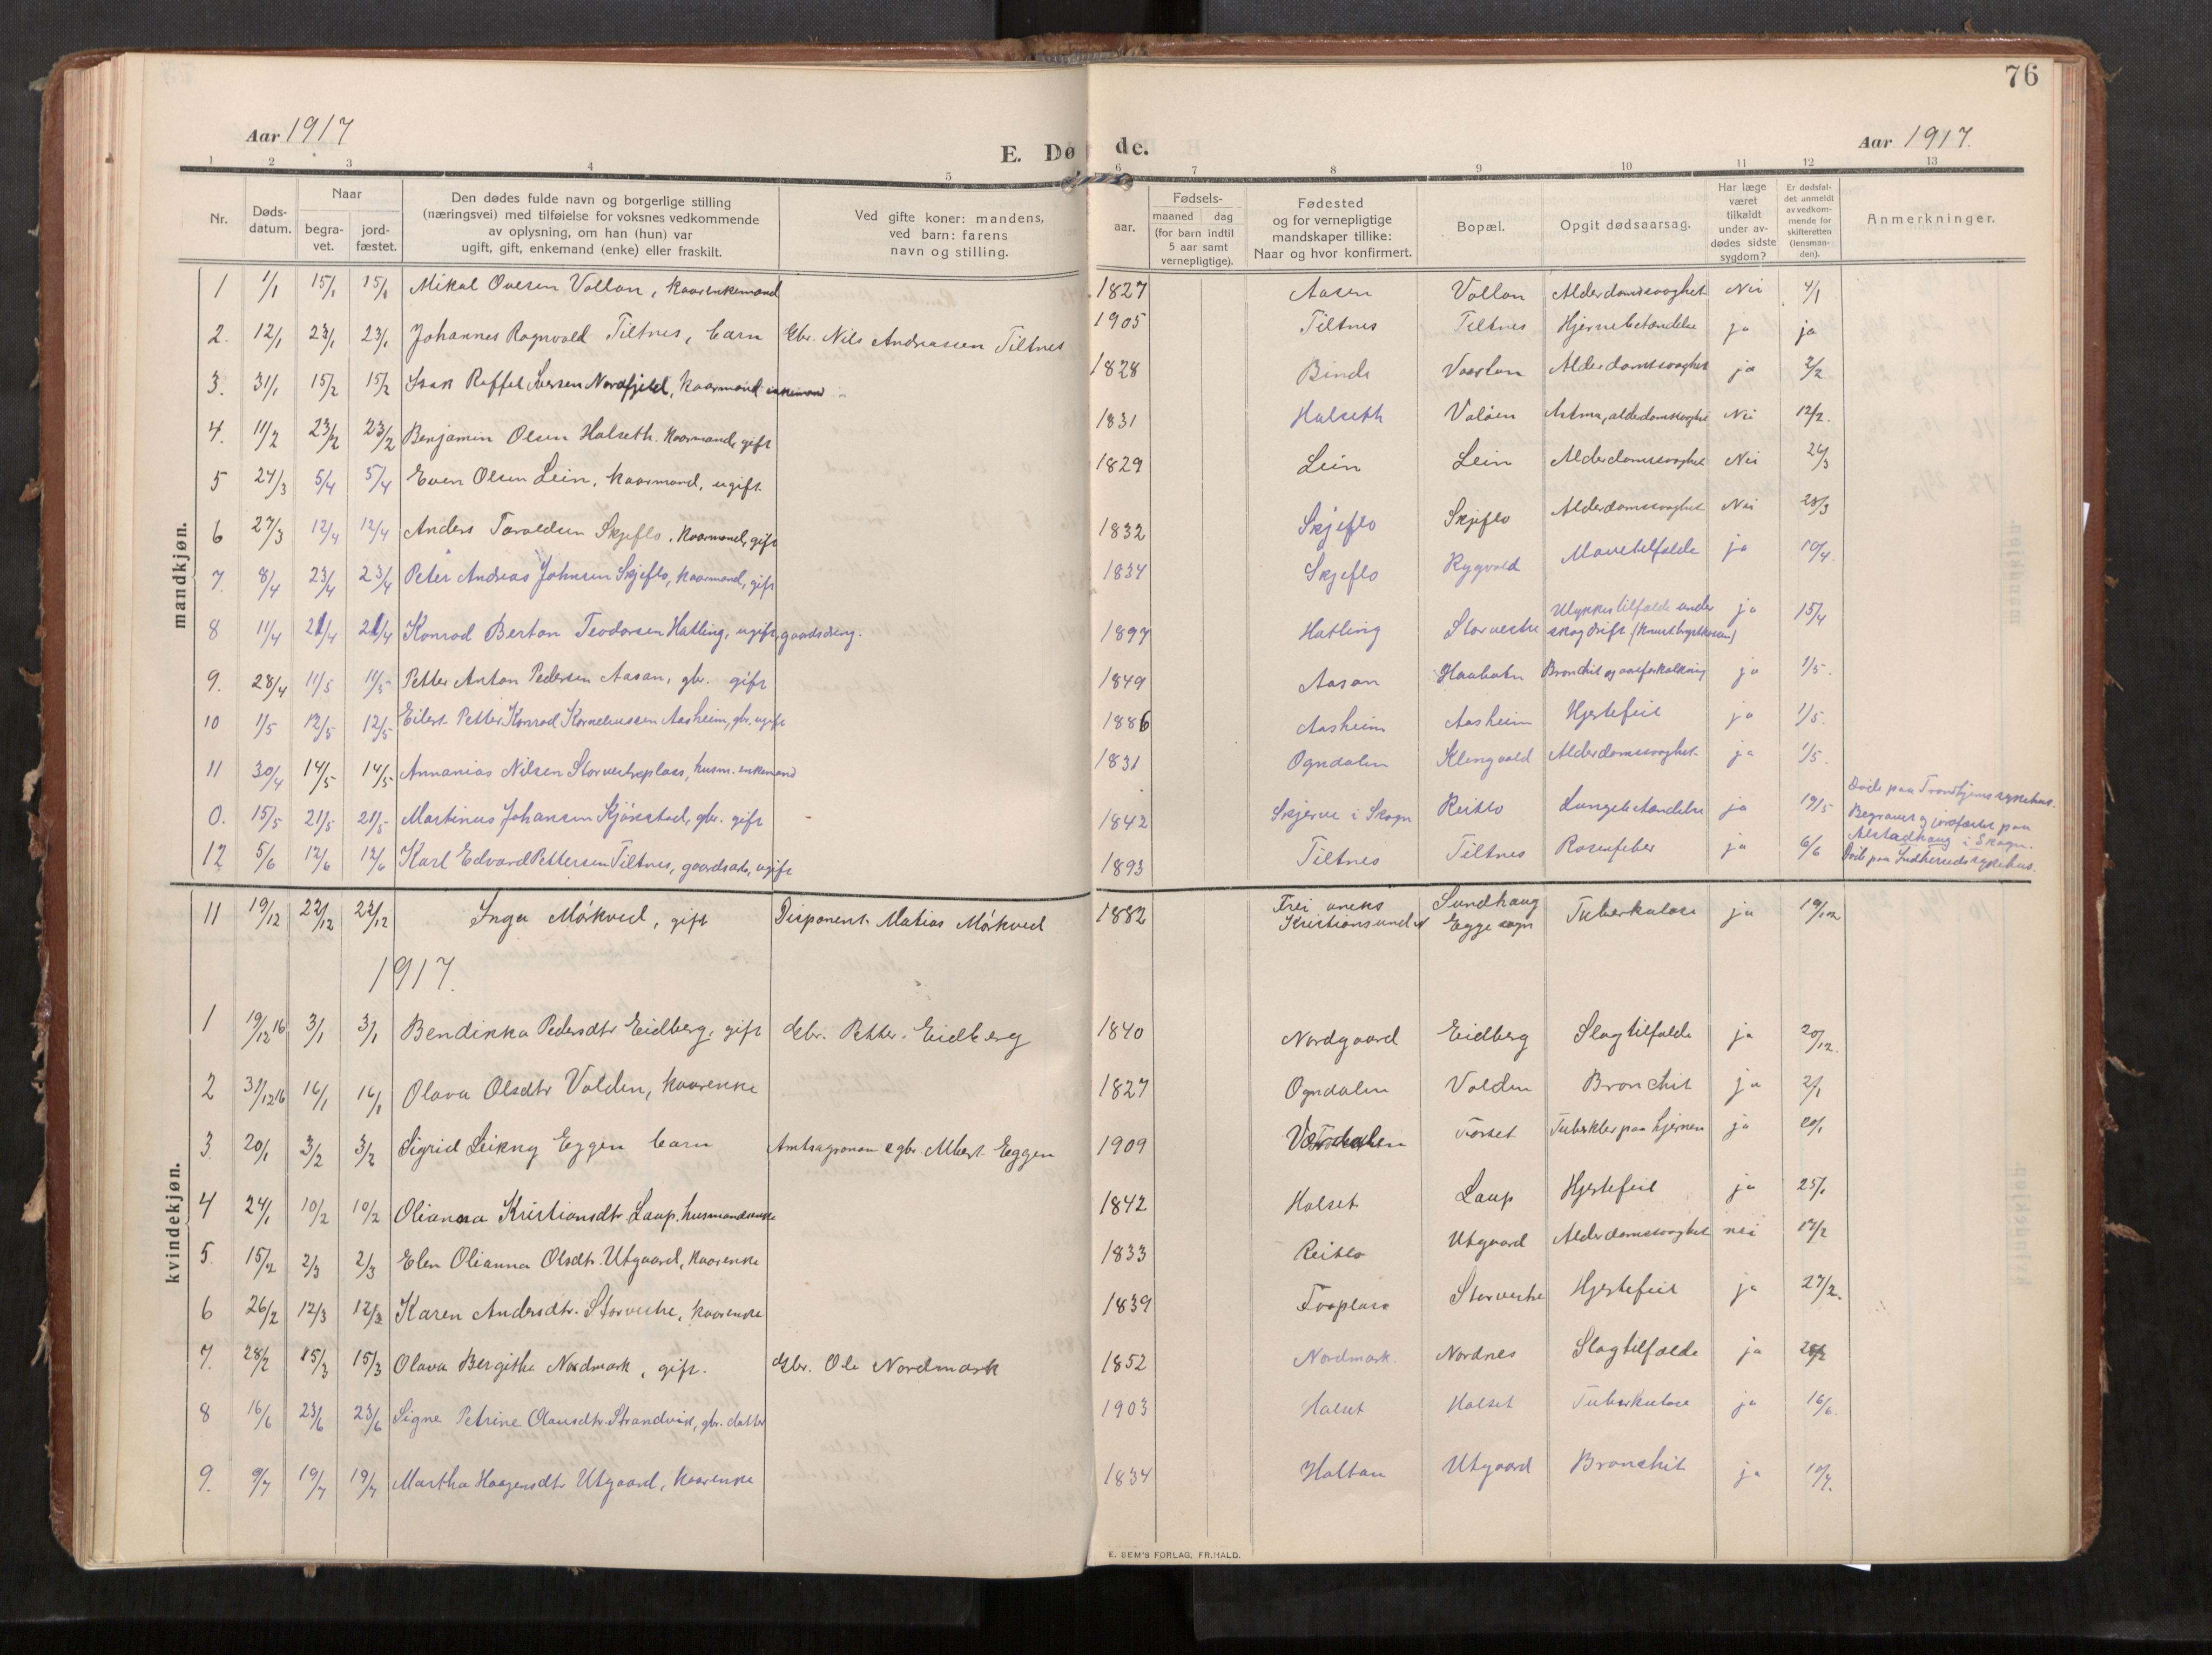 76
Aar 1917
E. Døde.
Aar 1917.
1 2 3 4 5 6 7 8 9 10 11 12 13
Nr.
Døds-
datum.
Naar
begra-
vet.
jord-
fæstet.
Den dødes fulde navn og borgerlige stilling
(næringsvei) med tilføielse for voksnes vedkommende
av oplysning, om han (hun) var
ugift, gift, enkemand (enke) eller fraskilt.
Ved gifte koner: mandens,
ved barn: farens
navn og stilling.
Fødsels-
aar.
maaned dag
(for barn indtil
5 aar samt
vernepligtige).
Fødested
og for vernepligtige
mandskaper tillike:
Naar og hvor konfirmert.
Bopæl.
Opgit dødsaarsag.
Har læge
været
tilkaldt
under av-
dødes sidste
sygdom?
Er dødsfal-
det anmeldt
av vedkom-
mende for
skifteretten
(lensman-
den).
Anmerkninger.
mandkjøn.
1 1/1 15/1 15/1 Mikal Ovesen Vollan, kaarenkemand 1827 Aasen Vollan Alderdomssvaghet Nei 4/1
2. 12/1 23/1 23/1 Johannes Ragnvald Tiltnes, barn Gbr. Nils Andreassen Tiltnes 1905 Tiltnes Tiltnes Hjernebetændelse ja ja
3. 31/1 15/2 15/2 Isak Roffel Iversen Nordfjeld, kaarmand enkemand 1828 Binde Vaerlan Alderdomssvaghet ja 2/2
4. 11/2 23/2 23/2 Benjamin Olsen Halseth. kaarmand, gift 1831 Halseth Valöen Astma, alderdomssvaghet Nei 12/2.
5 24/3 5/4 5/4 Even Olsen Lein, kaarmand, ugift 1829 Lein Lein Alderdomssvaghet Nei 26/3
6 27/3 12/4 12/4 Anders Taraldsen Skjeflo, kaarmand, gift 1832 Skjeflo Skjeflo Alderdomssvaghet Nei 28/3
7. 8/4 23/4 23/4 Peter Andreas Johnsen Skjeflo, kaarmand, gift 1834 Skjeflo Rygvold Mavetilfælde ja 10/4.
8 11/4 21/4 21/4 Konrad Berton Teodorsen Hatling, ugift, gaardsdreng. 1897 Hatling Storvestre Ulykkestilfælde under
skogdrift (knust brystkassen) ja 15/4
9. 28/4 11/5 11/5 Petter Anton Pedersen Aasan, gbr. gift 1849 Aasan Bronchit og aareforkalkning ja 1/5.
10 1/5 12/5 12/5 Eilert Petter Konrad Korneliussen Aasheim, gbr. ugift 1886 Aasheim Aasheim Hjertefeil ja 1/5.
11 30/4 14/5 14/5 Annanias Nilsen Storvestreplass, husm. enkemand 1831 Ogndalen Klingvold Alderdomssvaghet. ja 1/5.
0. 15/5 21/5 21/5 Martinus Johansen Kjönstad, gbr. gift 1842 Skjerve i Skogn Reitlo Lungebetændelse ja 19/5 Døde paa Trondhjems sykehus.
Begravet og jordfæstet paa
Alstadhaug i Skogn.
12 5/6 12/6 12/6 Karl Edvard Pettersen Tiltnes, gaardsarb., ugift 1893 Tiltnes Tiltnes Rosenfeber ja 6/6 Døde paa Indherreds sykehus.
kvindekjøn.
11 19/12 22/12 22/12 Inga Mökved, gift Disponent Matias Mökved 1882 Frei aneks
Kristiansund N Sundhaug
Egge sogn Tuberkulose ja 19/12
1917.
1 19/12 16 3/1 3/1 Bendikka Pedersdtr Eidberg, gift Gbr. Petter. Eidberg 1840 Nordgaard Eidberg Slagtilfælde ja 20/12.
2 31/12 16 16/1 16/1 Olava Olsdtr Volden, kaarenke 1827 Ogndalen Volden Bronchit ja 2/1
3. 20/1 3/2 3/2 Sigrid Leikny Eggen barn Amtsagronom &amp; gbr. Albert Eggen 1909 Forset Tuberkler paa hjernen ja 20/1
4 24/1 10/2 10/2 Olianna Kristiansdtr. Laup, husmandsenke 1842 Halset Laup Hjertefeil ja 25/1
5. 15/2 2/3 2/3 Elen Olianna Olsdtr. Utgaard, kaarenke 1833 Reitlo Utgaard Alderdomssvaghet nei 17/2
6 26/2 12/3 12/3 Karen Andersdtr. Storvestre, kaarenke 1839 Storvestre Hjertefeil ja 27/2.
7. 28/2 15/3 15/3 Olava Bergithe Nordmark, gift. Gbr. Ole Nordmark 1852 Nordmark. Nordnes Slagtilfælde ja
8 16/6 23/6 23/6 Signe Petrine Olausdtr. Strandvik, gbr. datter 1903 Halset Halset Tuberkulose ja 16/6.
9. 9/7 19/7 19/7 Martha Haagensdtr Utgaard, kaarenke 1834 Holtan Utgaard Bronchit ja 10/7.
E. SEM'S FORLAG, FR.HALD.